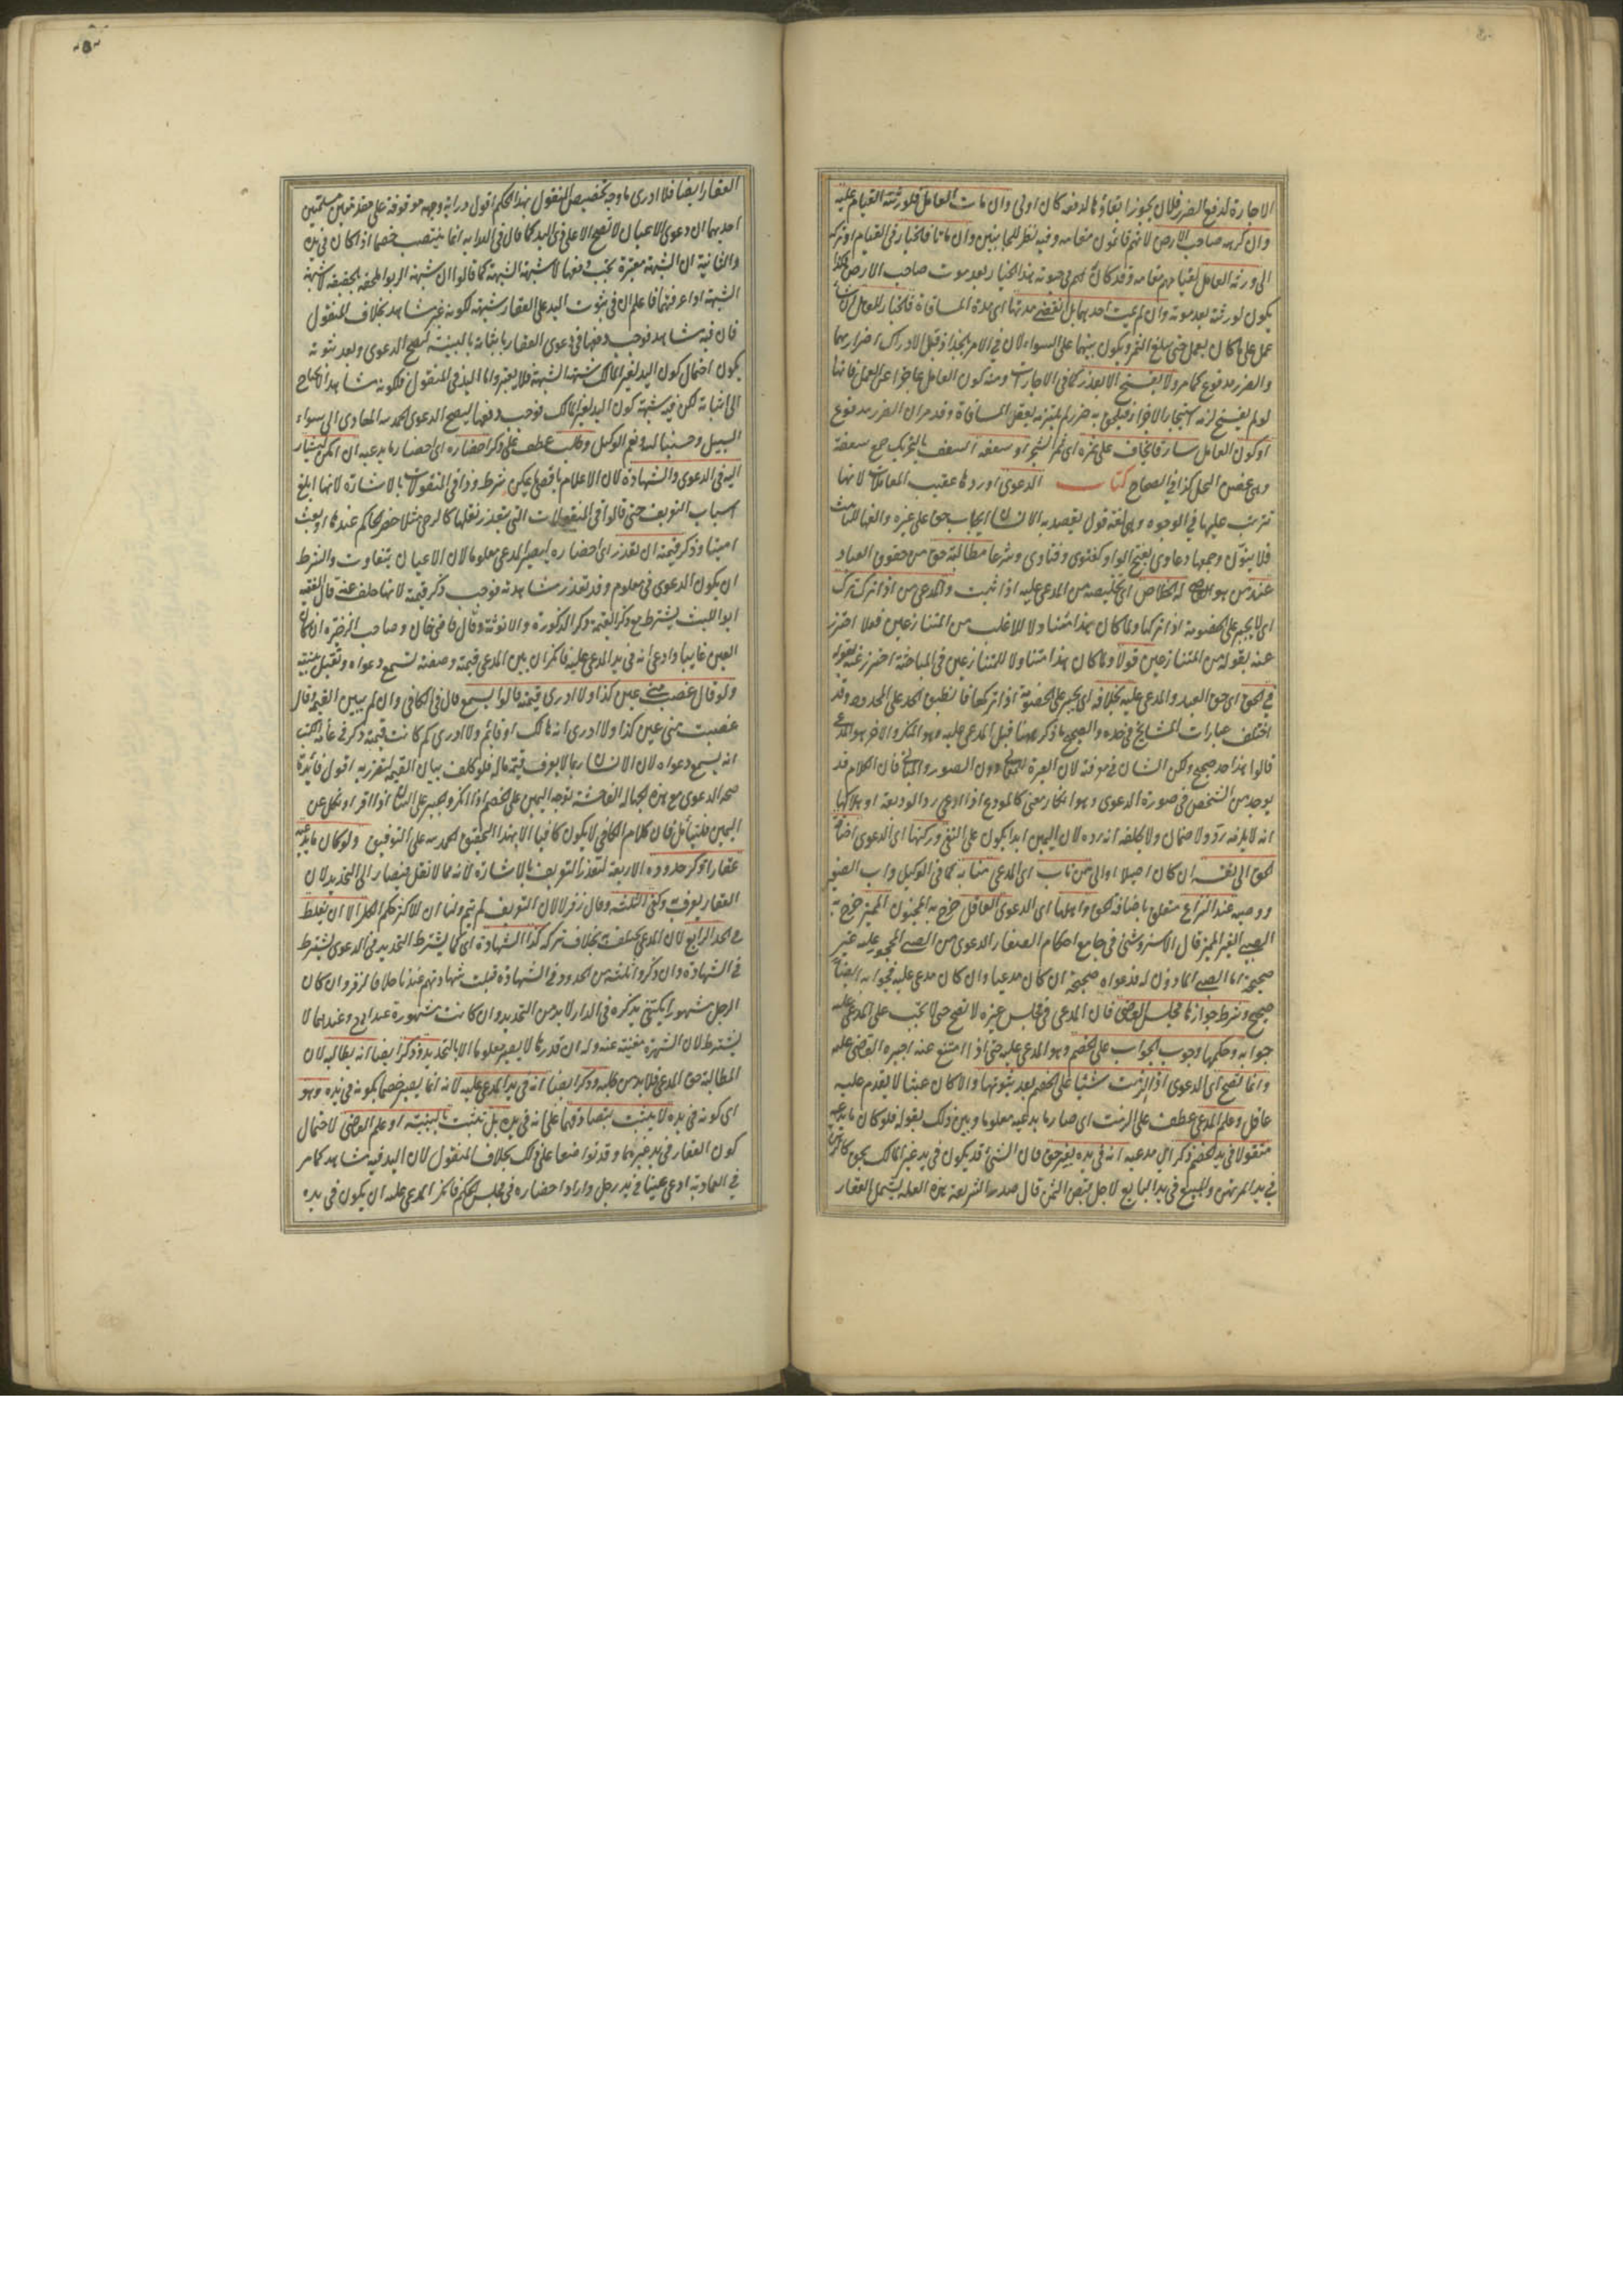 الاجارة لدفع الضرر فلان يجوز ابقاؤها لدفعه كان اولى وان مات العامل فلورثته القيام عليه
وان كره صاحب الارض لانهم قائمون مقامه وفيه نظر للجانبين وان ماتا فالخيار في القيام او تركه
الى ورثة العامل لقيامهم مقامه وقد كان لهم في حيوته هذا الخيار بعد موت صاحب الارض فكذا
يكون لورثته بعد موته وان لم يمت احدهما بل انقضى مدتها اى مدة المساقاة فالخيار للعامل ان شاء
عمل على ما كان يعمل حتى يبلغ الثمر ويكون بينهما على السواء لان في الامر بالجذاذ قبل الادراك اضرارا بهما
والضرر مدفوع كما مر ولا يفسخ الا بعذر كما في الاجارات ومنه كون العامل عاجزا عن العمل فانها
لو لم يفسخ لزمه استيجار الاجراء فيلحق به ضرر لم يلتزمه بعقد المساقاة وقد مر ان الضرر مدفوع
او كون العامل سارقا يخاف على ثمره اى ثمر الشجر او سعفه السعف بالتحريك جمع سعفة
وهي غصن النخل كذا في الصحاح كتاب الدعوى اوردها عقيب المعاملات لانها
تترتب عليها في الوجود وهي لغة قول يقصد به الانسان ايجاب حق على غيره والفها للتأنيث
فلا ينون وجمعها دعاوى بفتح الواو كفتوى وفتاوى وشرعا مطالبة حق من حقوق العباد
عند من هو له الخلاص اى تخليصه من المدعى عليه اذا ثبت والمدعى من اذا ترك ترك
اى لا يجبر على الخصومة اذا تركها ولما كان هذا متناولا للاغلب من المتنازعين فعلا احترز
عنه بقوله من المتنازعين قولا ولما كان هذا متناولا للمتنازعين في المباحثة احترز عنه بقوله
في الحق اى حق العبد والمدعى عليه بخلافه اى يجبر على الخصومة اذا تركها فانطبق الحد على المحدود وقد
اختلف عبارات المشايخ في حده والصحيح ما ذكر ههنا قيل المدعى عليه هو المنكر والاخر هو المدعى
قالوا هذا حد صحيح ولكن الشان في معرفته لان العبرة للمعانى دون الصور والمبانى فان الكلام قد
يوجد من الشخص في صورة الدعوى وهو انكار معنى كالمودع اذا ادعى رد الوديعة او هلاكها
انه لا يلزمه رد ولا ضمان ولا يحلفه انه رده لان اليمين ابدا يكون على النفى وركنها اى الدعوى اضافة
الحق الى نفسه ان كان اصيلا او الى من ناب اى المدعى منابه كما في الوكيل واب الصغير
ووصيه عند النزاع متعلق باضافة الحق واهلها اى الدعوى العاقل خرج به المجنون المميز خرج به
الصبى الغير المميز قال الاستروشنى في جامع احكام الصغار الدعوى من الصبى المحجور عليه غير
صحيحة اما الصبى الماذون له فدعواه صحيحة ان كان مدعيا وان كان مدعى عليه فجوابه ايضا
صحيح وشرط جوازها مجلس القاضى فان المدعى في مجلس غيره لا تصح حتى لا يجب على المدعى عليه
جوابه وحكمها وجوب الجواب على الخصم وهو المدعى عليه حتى اذا امتنع عنه اجبره القاضى عليه
وانما تصح اى الدعوى اذا الزمت شيئا على الخصم بعد ثبوتها والا كان عبثا لا يقدم عليه
عاقل وعلم المدعى عطف على الزمت اى صار ما يدعيه معلوما وبين ذلك بقوله فلو كان ما يدعيه
منقولا في يد الخصم ذكر اى مدعيه انه في يده بغير حق فان الشئ قد يكون في يد غير المالك بحق كالرهن
في يد المرتهن والمبيع في يد البايع لاجل قبض الثمن قال صدر الشريعة هذه العلة يشمل العقار
العقار ايضا فلا ادرى ما وجه تخصيص المنقول بهذا الحكم اقول دراية وجهه موقوفة على مقدمتين مسلمتين
احديهما ان دعوى الاعيان لا تصح الا على ذى اليد كما قال في الهداية انما ينتصب خصما اذا كان في يده
والثانية ان الشبهة معتبرة يجب دفعها لا شبهة الشبهة كما قالوا ان شبهة الربوا ملحقة بالحقيقة لا شبهة
الشبهة اذا عرفتهما فاعلم ان في ثبوت اليد على العقار شبهة لكونه غير مشاهد بخلاف المنقول
فان فيه مشاهد فوجب دفعها في دعوى العقار باثباته بالبينة لتصح الدعوى وبعد ثبوته
يكون احتمال كون اليد لغير المالك شبهة الشبهة فلا يعتبر واما اليد في المنقول فلكونه مشاهدا لا يحتاج
الى اثباته لكن فيه شبهة كون اليد لغير المالك فوجب دفعها ليصح الدعوى الحمد لله الهادى الى سواء
السبيل وحسبنا الله ونعم الوكيل وطلب عطف على ذكر احضاره اى احضار ما يدعيه ان امكن ليشار
اليه في الدعوى والشهادة لان الاعلام باقصى ما يمكن شرط وذا في المنقولات بالاشارة لانها ابلغ
اسباب التعريف حتى قالوا في المنقولات التى يتعذر نقلها كالرحى مثلا حضر الحاكم عندها او بعث
امينا وذكر قيمته ان تعذر اى احضاره ليصير المدعى معلوما لان الاعيان يتفاوت والشرط
ان يكون الدعوى في معلوم وقد تعذر مشاهدته فوجب ذكر قيمته لانها خلف عنه قال الفقيه
ابو الليث يشترط مع ذكر القيمة ذكر الذكورة والانوثة وقال قاضى خان وصاحب الذخيرة ان كان
العين غايبا وادعى انه في يد المدعى عليه فانكر ان بين المدعى قيمته وصفته تسمع دعواه وتقبل بينته
ولو قال غصب منى عين كذا ولا ادرى قيمته قالوا تسمع قال في الكافى وان لم يبين القيمة وقال
غصبت منى عين كذا ولا ادرى انه هالك او قائم ولا ادرى كم كانت قيمته ذكر في عامة الكتب
انه يسمع دعواه لان الانسان ربما لا يعرف قيمة ماله فلو كلف بيان القيمة لتضرر به اقول فائدة
صحة الدعوى مع هذه الجهالة الفاحشة توجه اليمين على الخصم اذا انكر والجبر على البيان اذا اقر او نكل عن
اليمين فليتأمل فان كلام الكافى لا يكون كافيا الا بهذا التحقيق الحمد لله على التوفيق ولو كان ما يدعيه
عقارا ذكر حدوده الاربعة لتعذر التعريف بالاشارة لانه مما لا ينقل فيصار الى التحديد لان
العقار يعرف به وكفى الثلثة وقال زفر لا لان التعريف لم يتم ولنا ان للاكثر حكم الكل الا ان يغلط
في الحد الرابع لان المدعى يختلف به بخلاف تركه كذا الشهادة اى كما يشترط التحديد في الدعوى يشترط
في الشهادة وان ذكروا ثلثة من الحدود في الشهادة قبلت شهادتهم عندنا خلافا لزفر وان كان
الرجل مشهورا يكتفى بذكره في الدار لا بد من التحديد وان كانت مشهورة عند ابى ح وعندهما لا
يشترط لان الشهرة مغنية عنه وله ان قدرها لا يصير معلوما الا بالتحديد وذكر ايضا انه يطالبه لان
المطالبة حق المدعى فلا بد من طلبه وذكر ايضا انه في يد المدعى عليه لانه انما يصير خصما بكونه في يده وهو
اى كونه في يده لا يثبت بتصادقهما على انه في يده بل تثبت بالبينة او علم القاضى لاحتمال
كون العقار في يد غيرهما وقد تواضعا على ذلك بخلاف المنقول لان اليد فيه مشاهد كما مر
في العمادية ادعى عينا في يد رجل واراد احضاره في مجلس الحكم فانكر المدعى عليه ان يكون في يده